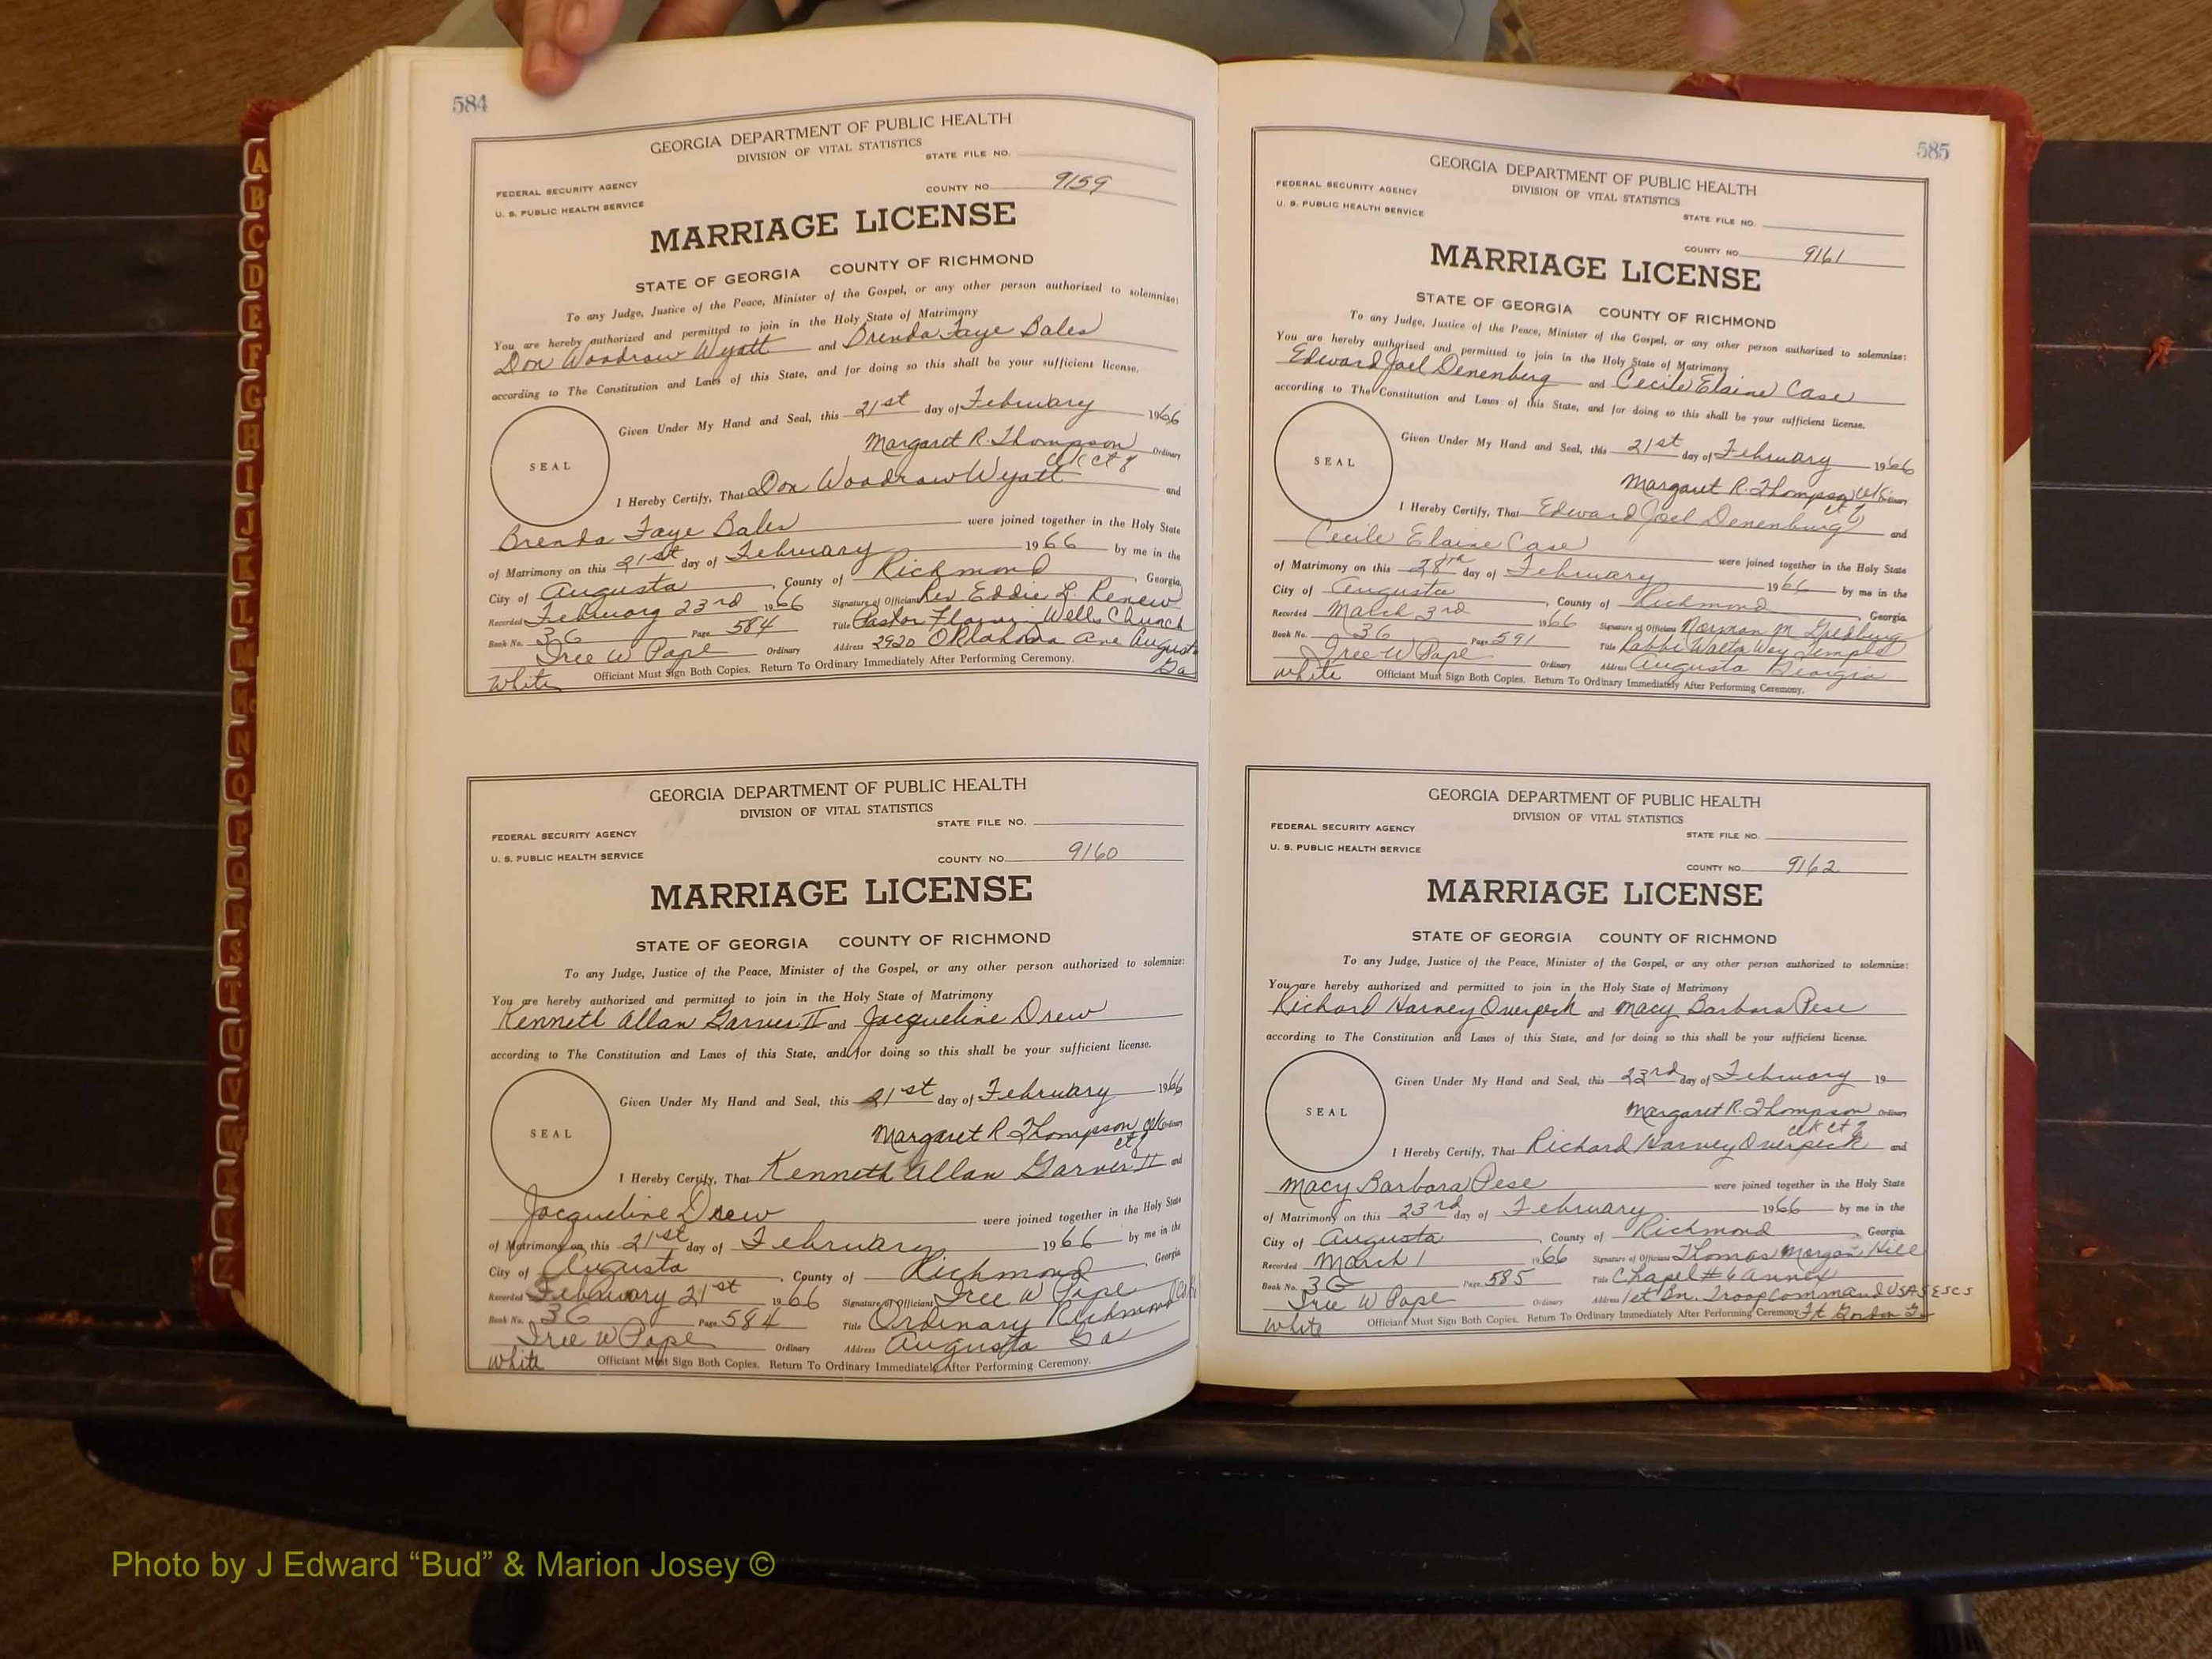 584
GEORGIA DEPARTMENT OF PUBLIC HEALTH
DIVISION OF VITAL STATISTICS
STATE FILE NO.
FEDERAL SECURITY AGENCY
U. S. PUBLIC HEALTH SERVICE
COUNTY NO. 9159
MARRIAGE LICENSE
STATE OF GEORGIA COUNTY OF RICHMOND
To any Judge, Justice of the Peace, Minister of the Gospel, or any other person authorized to solemnize:
You are hereby authorized and permitted to join in the Holy State of Matrimony
Don Woodrow Wyatt and Brenda Faye Bales
according to The Constitution and Laws of this State, and for doing so this shall be your sufficient license.
Given Under My Hand and Seal, this 21st day of February 1966
SEAL
Margaret R. Thompson Ordinary
Clk Ct
I Hereby Certify, That Don Woodrow Wyatt and
Brenda Faye Bales were joined together in the Holy State
of Matrimony on this 21st day of February 1966 by me in the
City of Augusta, County of Richmond, Georgia
Recorded February 23rd 1966 Signature of Officiant Rev Eddie L. Renew
Book No. 36 Page 584 Title Pastor Wells Church
Iree W Pope Ordinary Address 2920 Oklahoma Ave Augusta
Ga
White Officiant Must Sign Both Copies. Return To Ordinary Immediately After Performing Ceremony.
GEORGIA DEPARTMENT OF PUBLIC HEALTH
DIVISION OF VITAL STATISTICS
STATE FILE NO.
FEDERAL SECURITY AGENCY
U. S. PUBLIC HEALTH SERVICE
COUNTY NO. 9160
MARRIAGE LICENSE
STATE OF GEORGIA COUNTY OF RICHMOND
To any Judge, Justice of the Peace, Minister of the Gospel, or any other person authorized to solemnize:
You are hereby authorized and permitted to join in the Holy State of Matrimony
Kenneth Allan Garver II and Jacqueline Drew
according to The Constitution and Laws of this State, and for doing so this shall be your sufficient license.
Given Under My Hand and Seal, this 21st day of February 1966
SEAL
Margaret R Thompson Clk Ordinary
Ct
I Hereby Certify, That Kenneth Allan Garver II and
Jacqueline Drew were joined together in the Holy State
of Matrimony on this 21st day of February, 1966 by me in the
City of Augusta, County of Richmond, Georgia
Recorded February 21st 1966 Signature of Officiant Iree W Pope
Book No. 36 Page 584 Title Ordinary Richmond
Iree W Pope Ordinary Address Augusta Ga
White Officiant Must Sign Both Copies. Return To Ordinary Immediately After Performing Ceremony.
585
GEORGIA DEPARTMENT OF PUBLIC HEALTH
DIVISION OF VITAL STATISTICS
STATE FILE NO.
FEDERAL SECURITY AGENCY
U. S. PUBLIC HEALTH SERVICE
COUNTY NO. 9161
MARRIAGE LICENSE
STATE OF GEORGIA COUNTY OF RICHMOND
To any Judge, Justice of the Peace, Minister of the Gospel, or any other person authorized to solemnize:
You are hereby authorized and permitted to join in the Holy State of Matrimony
Edward Joel Denenberg and Cecile Elaine Case
according to The Constitution and Laws of this State, and for doing so this shall be your sufficient license.
Given Under My Hand and Seal, this 21st day of February 1966
SEAL
Margaret R. Thompson Clk Ordinary
Ct
I Hereby Certify, That Edward Joel Denenburg and
Cecile Elaine Case were joined together in the Holy State
of Matrimony on this 28th day of February 1966 by me in the
City of Augusta, County of Richmond, Georgia
Recorded March 3rd 1966 Signature of Officiant Norman M
Book No. 36 Page 591 Title Rabbi Walton Way Temple
Iree W Pope Ordinary Address Augusta Georgia
White Officiant Must Sign Both Copies. Return To Ordinary Immediately After Performing Ceremony.
GEORGIA DEPARTMENT OF PUBLIC HEALTH
DIVISION OF VITAL STATISTICS
STATE FILE NO.
FEDERAL SECURITY AGENCY
U. S. PUBLIC HEALTH SERVICE
COUNTY NO. 9162
MARRIAGE LICENSE
STATE OF GEORGIA COUNTY OF RICHMOND
To any Judge, Justice of the Peace, Minister of the Gospel, or any other person authorized to solemnize:
You are hereby authorized and permitted to join in the Holy State of Matrimony
Richard Harvey Overpeck and Macy Barbara Pese
according to The Constitution and Laws of this State, and for doing so this shall be your sufficient license.
Given Under My Hand and Seal, this 23rd day of February 19
SEAL
Margaret R. Thompson Ordinary
Clk Ct
I Hereby Certify, That Richard Harvey Overpeck and
Macy Barbara Pese were joined together in the Holy State
of Matrimony on this 23rd day of February 1966 by me in the
City of Augusta, County of Richmond, Georgia
Recorded March 1 1966 Signature of Officiant Thomas Morgan Hill
Book No. 36 Page 585 Title Chapel #6 Annex
Iree W Pope Ordinary Address 1st Bn. Troop Command USASESCS
White Officiant Must Sign Both Copies. Return To Ordinary Immediately After Performing Ceremony. Ft Gordon Ga
A
B
C
D
E
F
G
H
I
J
K
L
M
Mc
N
O
P
Q
R
S
T
U
V
W
X
Y
Z
Photo by J Edward “Bud” & Marion Josey ©